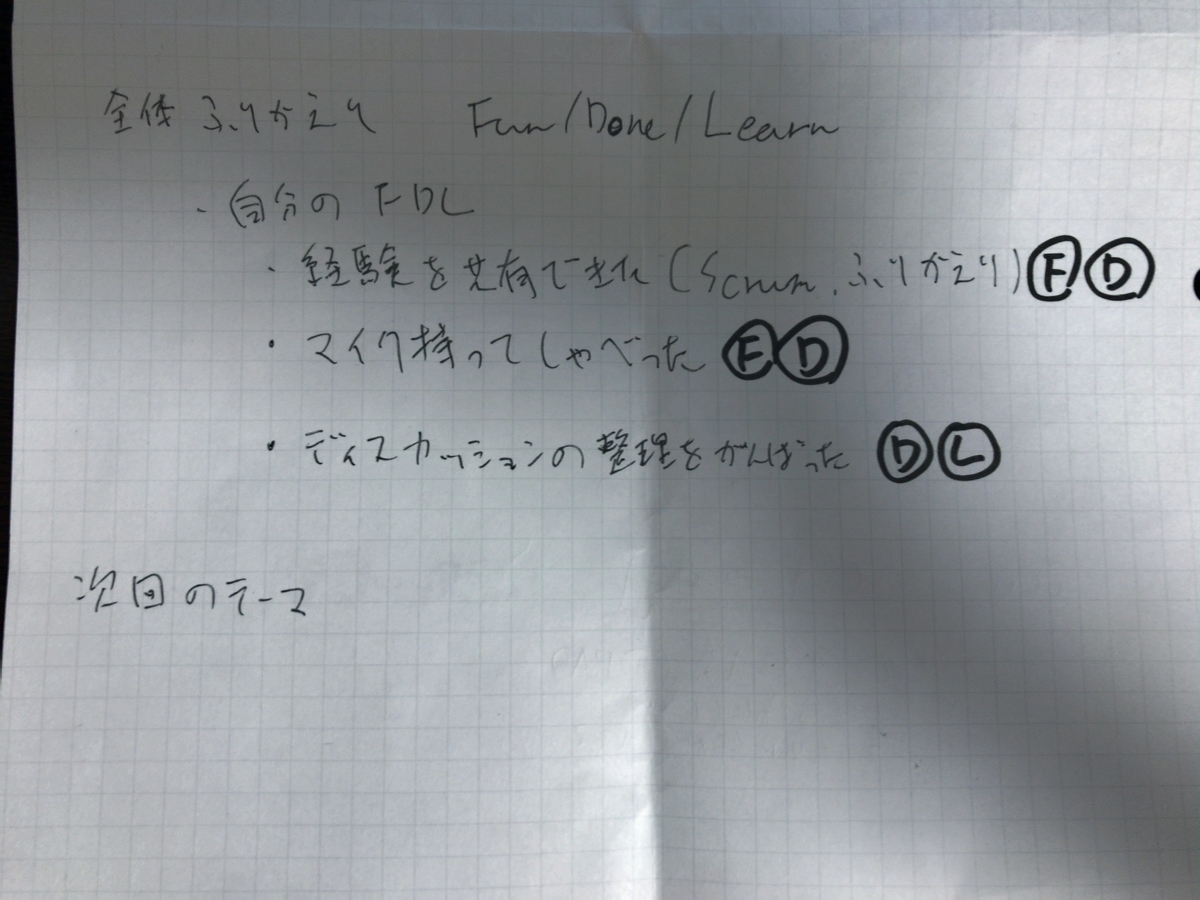 全体ふりかえり Fun/Done/Learn
・自分の FDL
・経験を共有できた (Scrum, ふりかえり) F D
・マイク持ってしゃべった F D
・ディスカッションの整理をがんばった D L
次回のテーマ